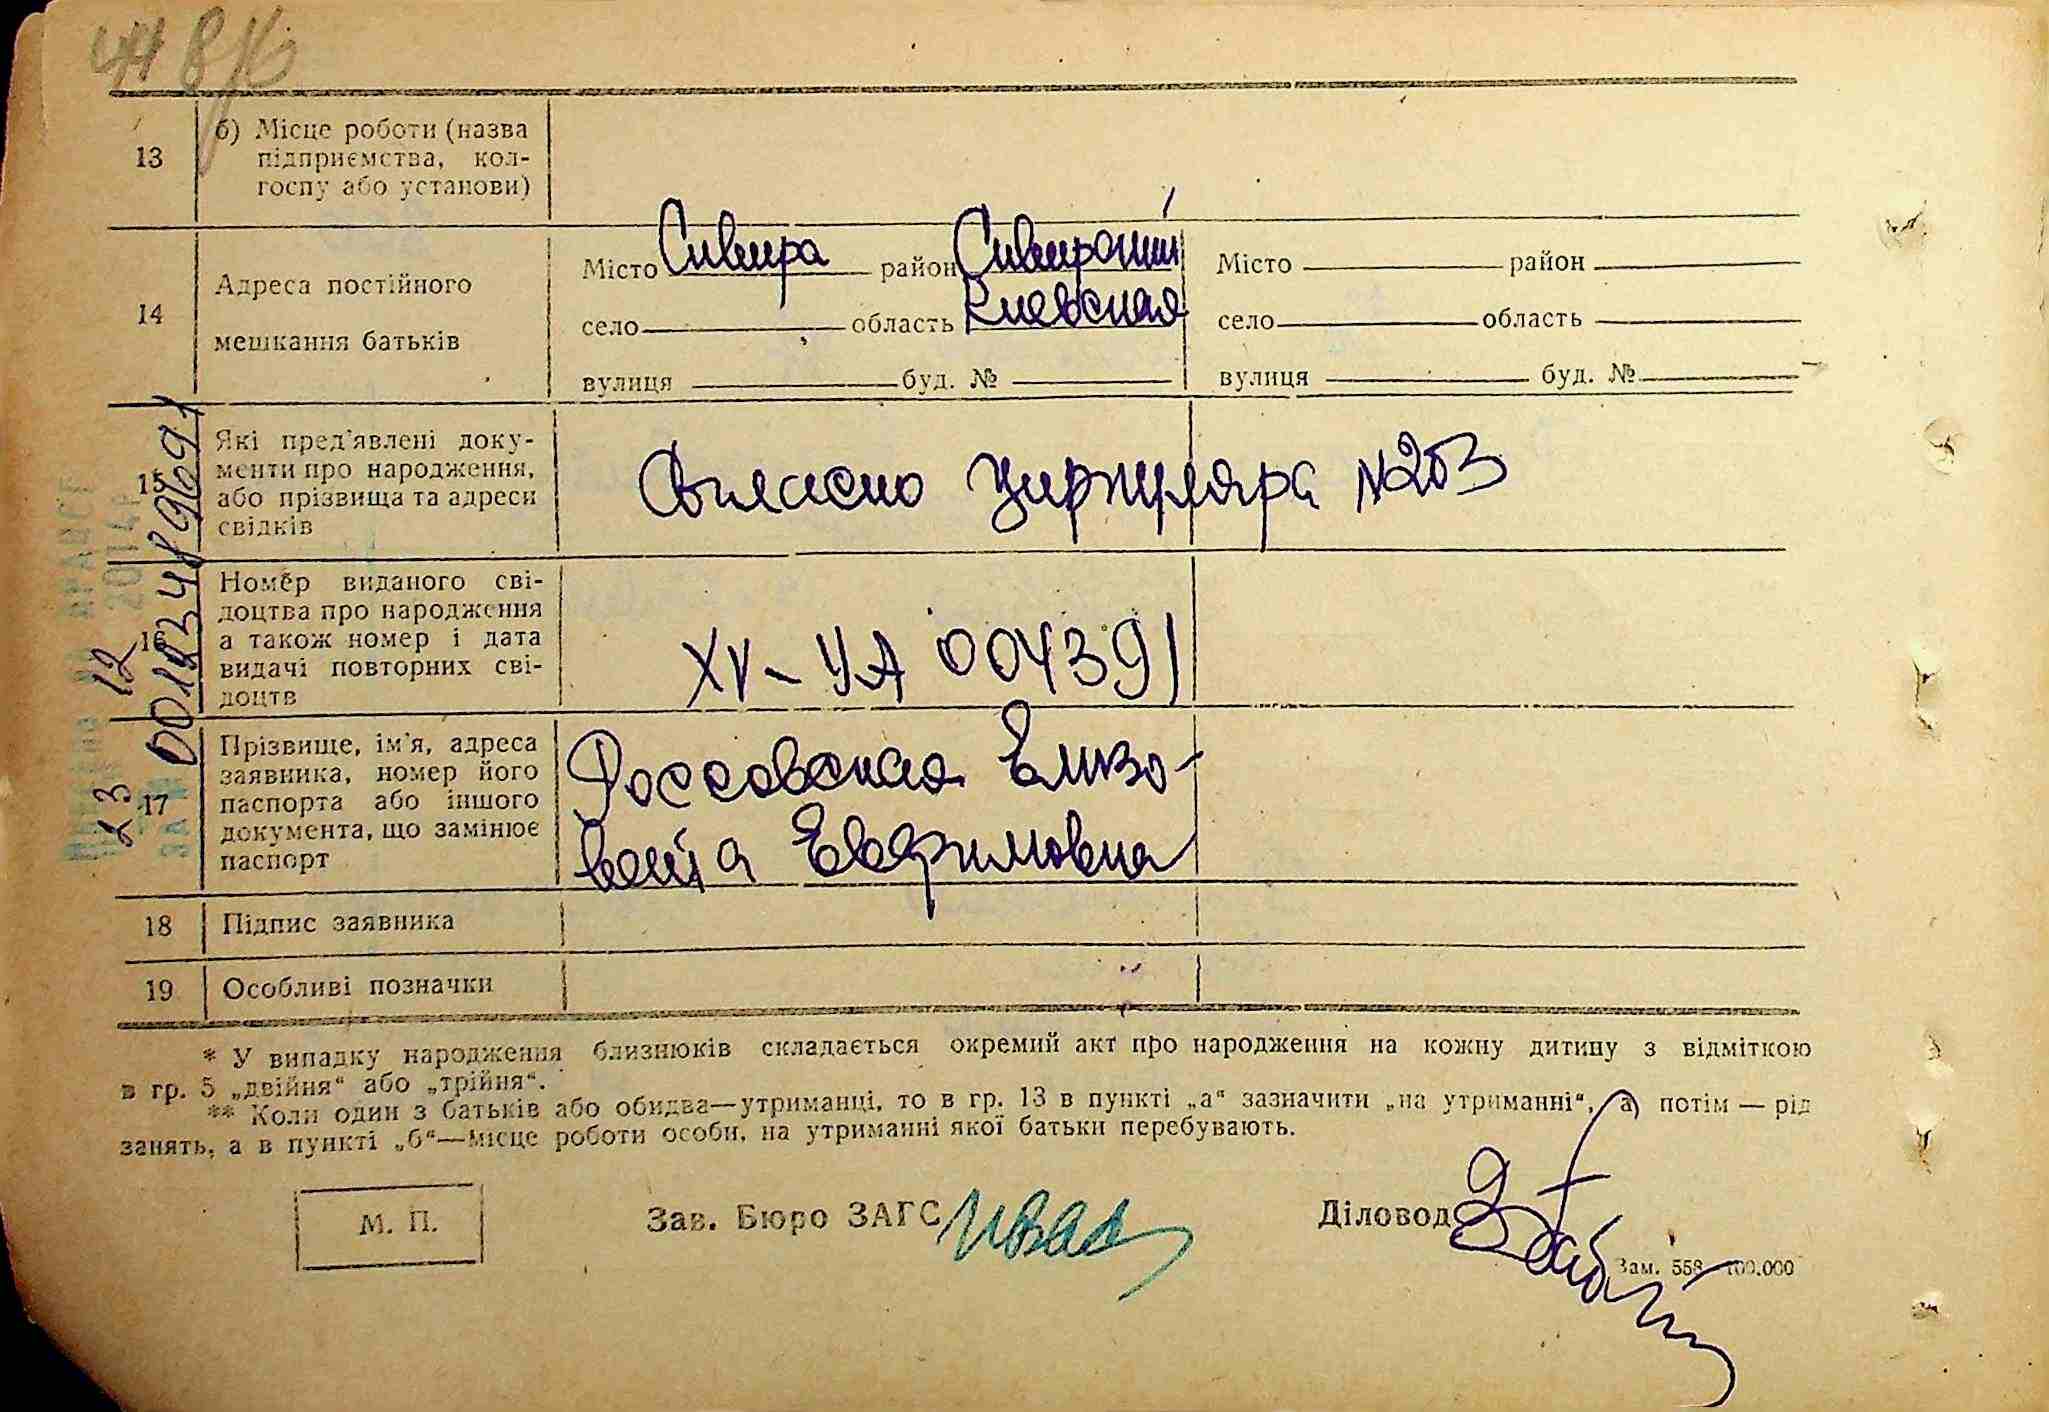 13
б) Місце роботи (назва
підприємства, кол-
госпу або установи)
14
Адреса постійного
мешкання батьків
Місто Сквира район Сквирский
село область Киевская
вулиця буд. №
Місто район
село область
вулиця буд. №
15
Які пред'явлені доку-
менти про народження,
або прізвища та адреси
свідків
Согласно циркуляра № 203
16
Номер виданого сві-
доцтва про народження
а також номер і дата
видачі повторних сві-
доцтв
XV-УА 004391
17
Прізвище, ім'я, адреса
заявника, номер його
паспорта або іншого
документа, що замінює
паспорт
Россовская Елиза-
вета Евфимовна
18 Підпис заявника
19 Особливі позначки
* У випадку народження близнюків складається окремий акт про народження на кожну дитину з відміткою
в гр. 5 „двійня“ або „трійня“.
** Коли один з батьків або обидва—утриманці, то в гр. 13 в пункті „а“ зазначити „на утриманні“, а потім — рід
занять, а в пункті „б“—місце роботи особи, на утриманні якої батьки перебувають.
М. П.
Зав. Бюро ЗАГС
Діловод
Зам. 558 100.000